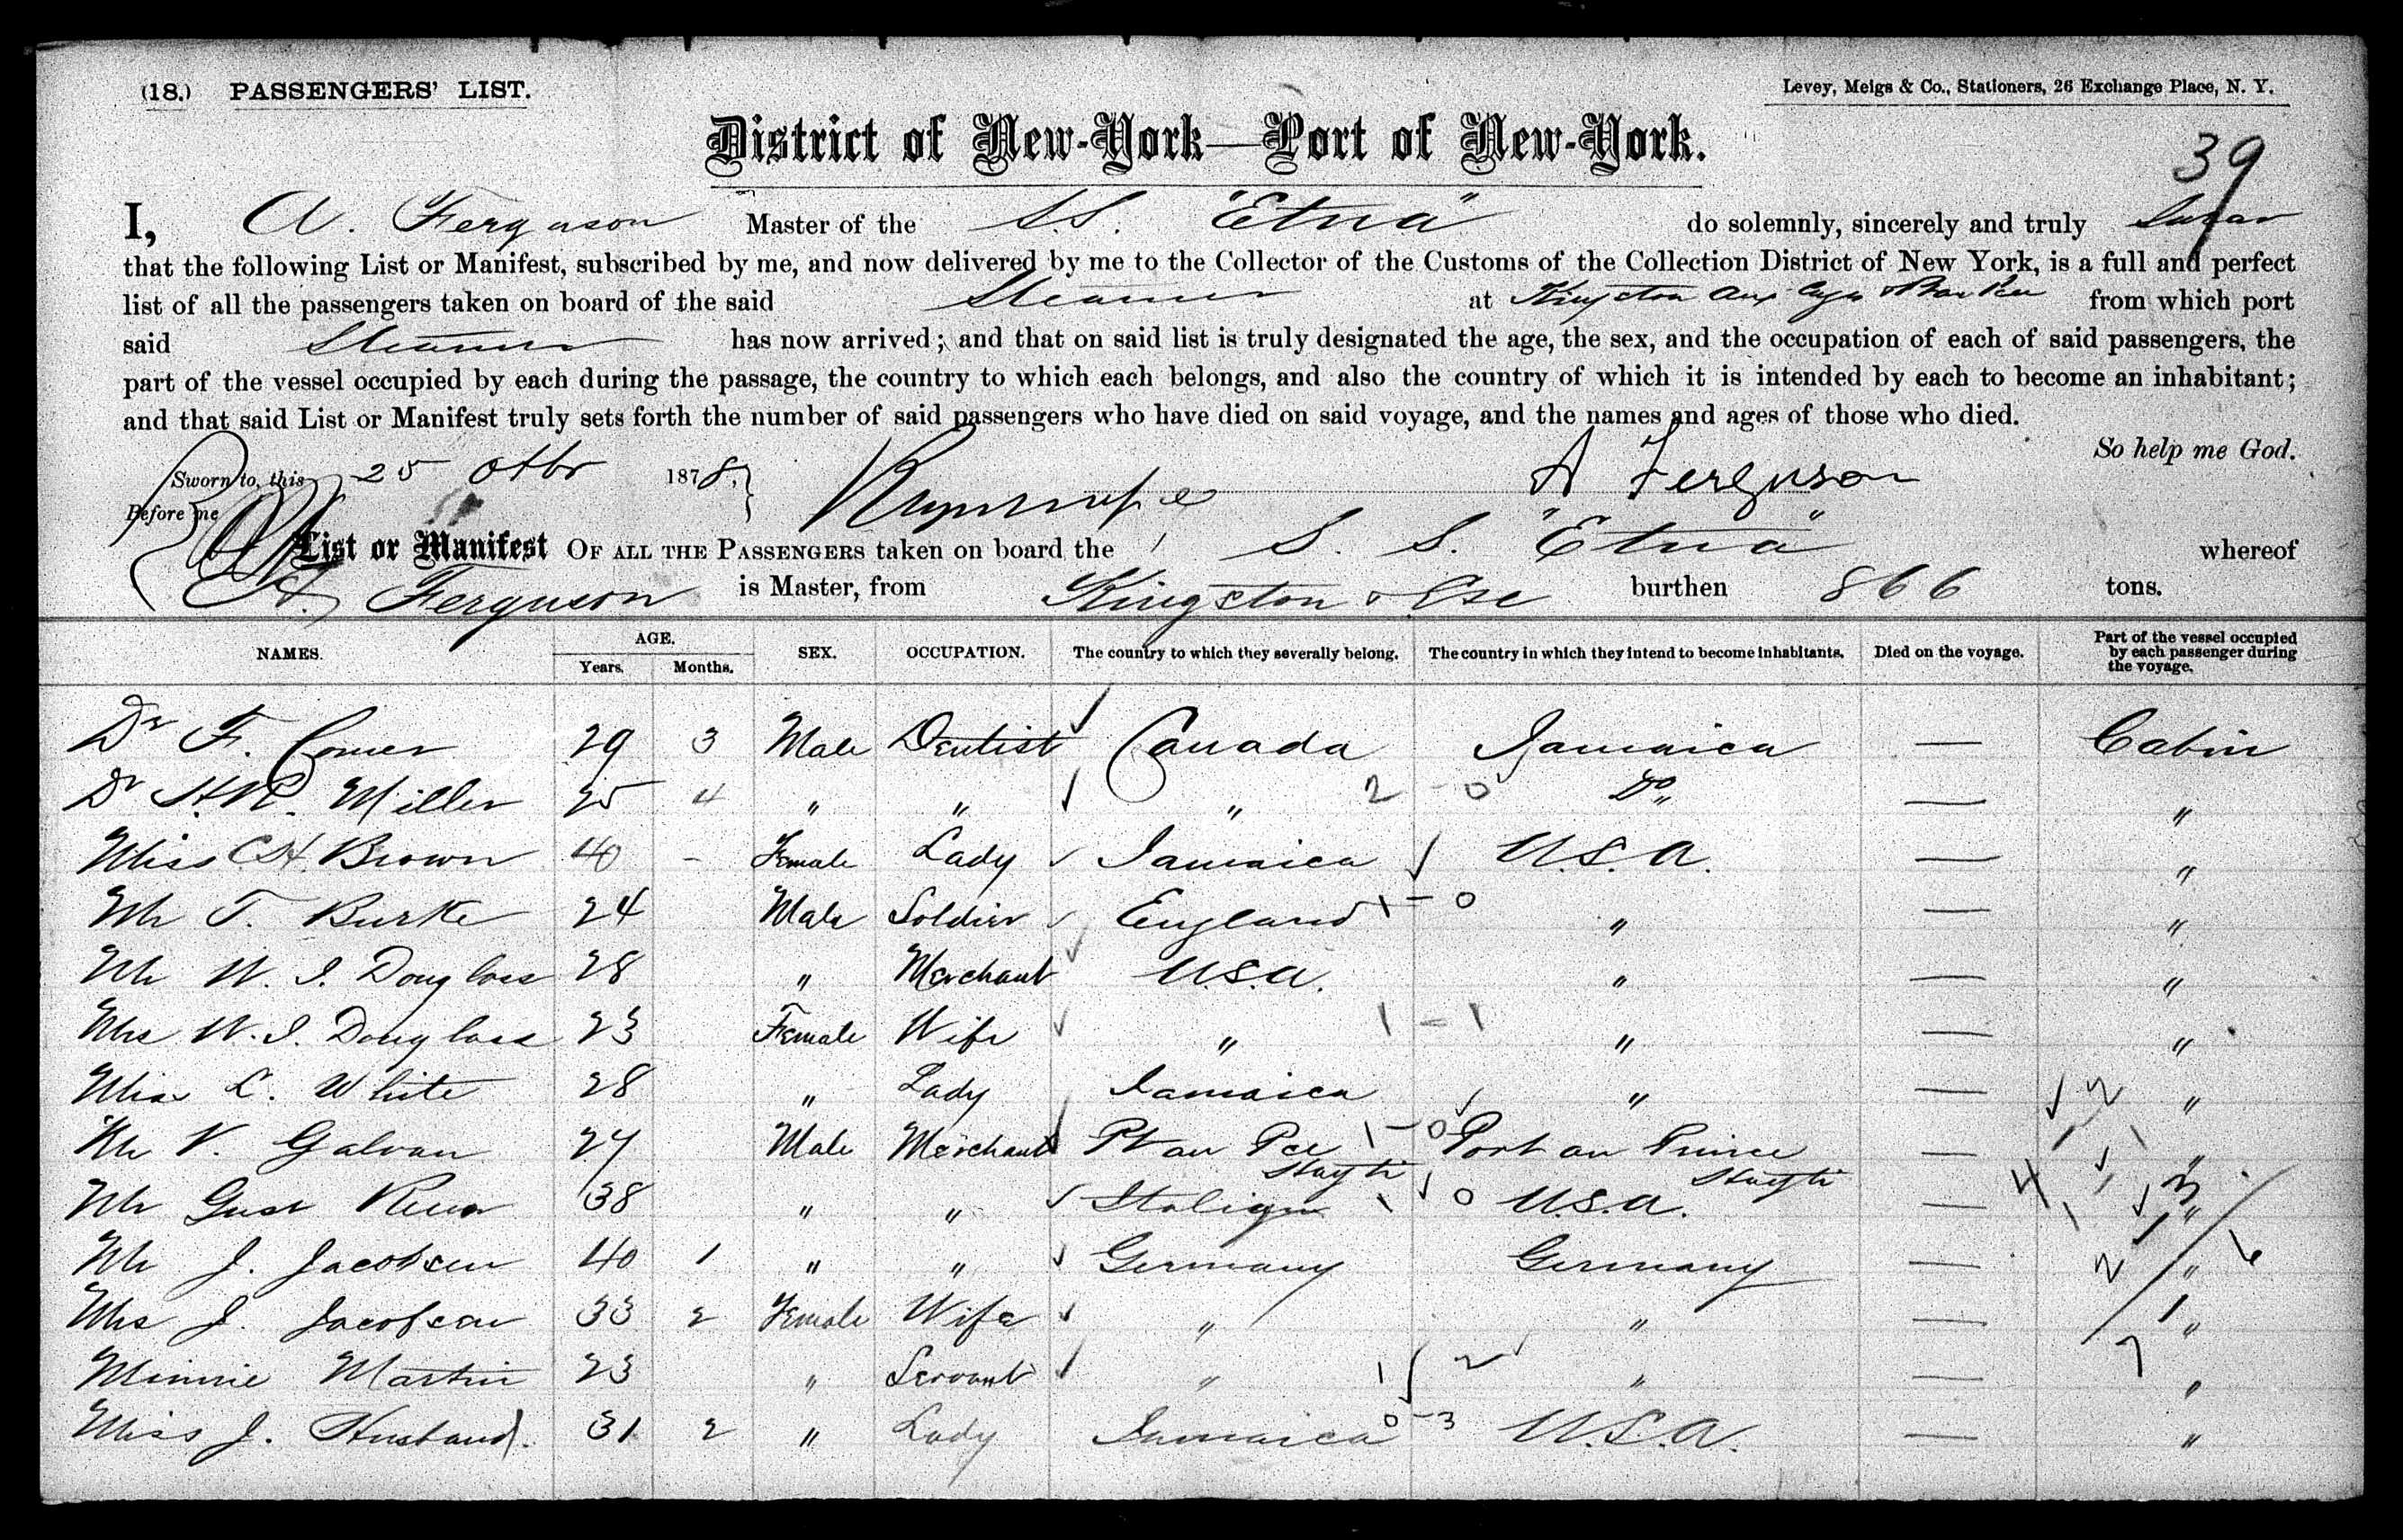 (18.) PASSENGERS' LIST.
Levey, Meigs & Co., Stationers, 26 Exchange Place, N. Y.
District of New-York—Port of New-York.
39
I, A. Ferguson Master of the S.S. "Etna" do solemnly, sincerely and truly Swear
that the following List or Manifest, subscribed by me, and now delivered by me to the Collector of the Customs of the Collection District of New York, is a full and perfect
list of all the passengers taken on board of the said Steamer at Kingston from which port
said Steamer has now arrived; and that on said list is truly designated the age, the sex, and the occupation of each of said passengers, the
part of the vessel occupied by each during the passage, the country to which each belongs, and also the country of which it is intended by each to become an inhabitant;
and that said List or Manifest truly sets forth the number of said passengers who have died on said voyage, and the names and ages of those who died.
So help me God.
Sworn to, this 25 Otbr 1878. A Ferguson
Before me
List or Manifest OF ALL THE PASSENGERS taken on board the S. S. "Etna" whereof
A. Ferguson is Master, from Kingston & Esc burthen 866 tons.
NAMES. AGE. Years. Months. SEX. OCCUPATION. The country to which they severally belong. The country in which they intend to become inhabitants. Died on the voyage. Part of the vessel occupied by each passenger during the voyage.
Dr F. Comer 29 3 Male Dentist Canada Jamaica — Cabin
Dr H.R. Miller 25 4 " " " 2 - 0 Do — "
Miss C H. Brown 40 - Female Lady Jamaica U.S.A. — "
Mr T. Burke 24 Male Soldier England 1 - 0 " — "
Mr W. I. Douglass 28 " Merchant U.S.A. " — "
Mrs W. I. Douglass 23 Female Wife " 1 - 1 " — "
Miss L. White 28 " Lady Jamaica " — "
Mr V. Galvan 27 Male Merchant Pt au Pce Hayti 1 - 0 Port au Prince Hayti — "
Mr Gust 38 " " 1 0 U.S.A. — "
Mr J. Jacobsen 40 1 " " Germany Germany — "
Mrs J. Jacobsen 33 2 Female Wife " " — "
Minnie Martin 23 " Servant " 1 2 " — "
Miss J. Husband. 31 2 " Lady Jamaica 0 - 3 U.S.A. — "